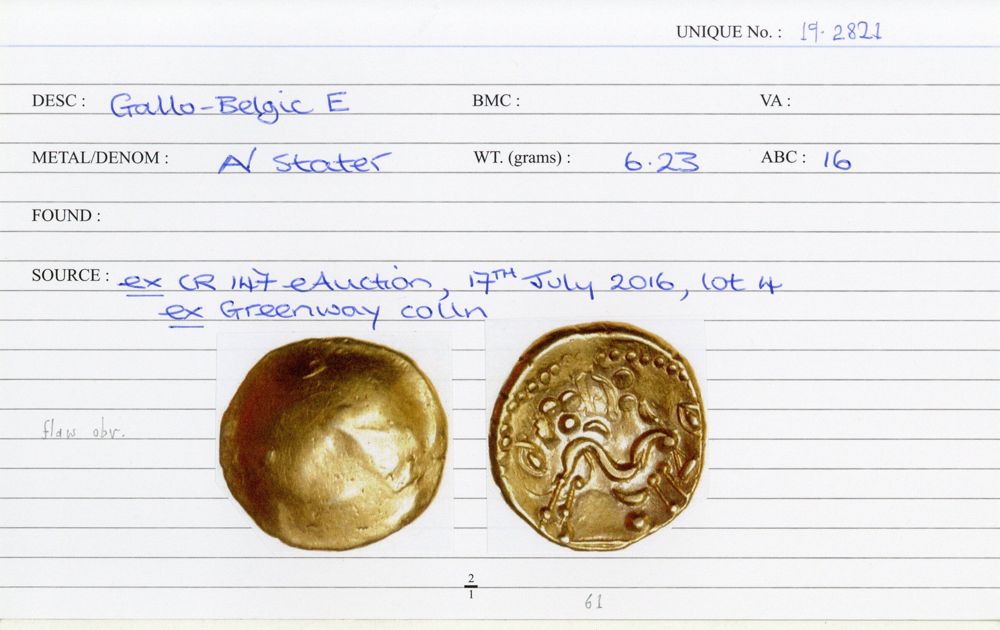 UNIQUE No. : 19.2821
DESC : Gallo-Belgic E BMC : VA :
METAL/DENOM : AV Stater WT. (grams) : 6.23 ABC : 16
FOUND :
SOURCE : ex CR 147 eAuction, 17TH July 2016, lot 4
ex Greenway colln
flaw obv.
2
1
61